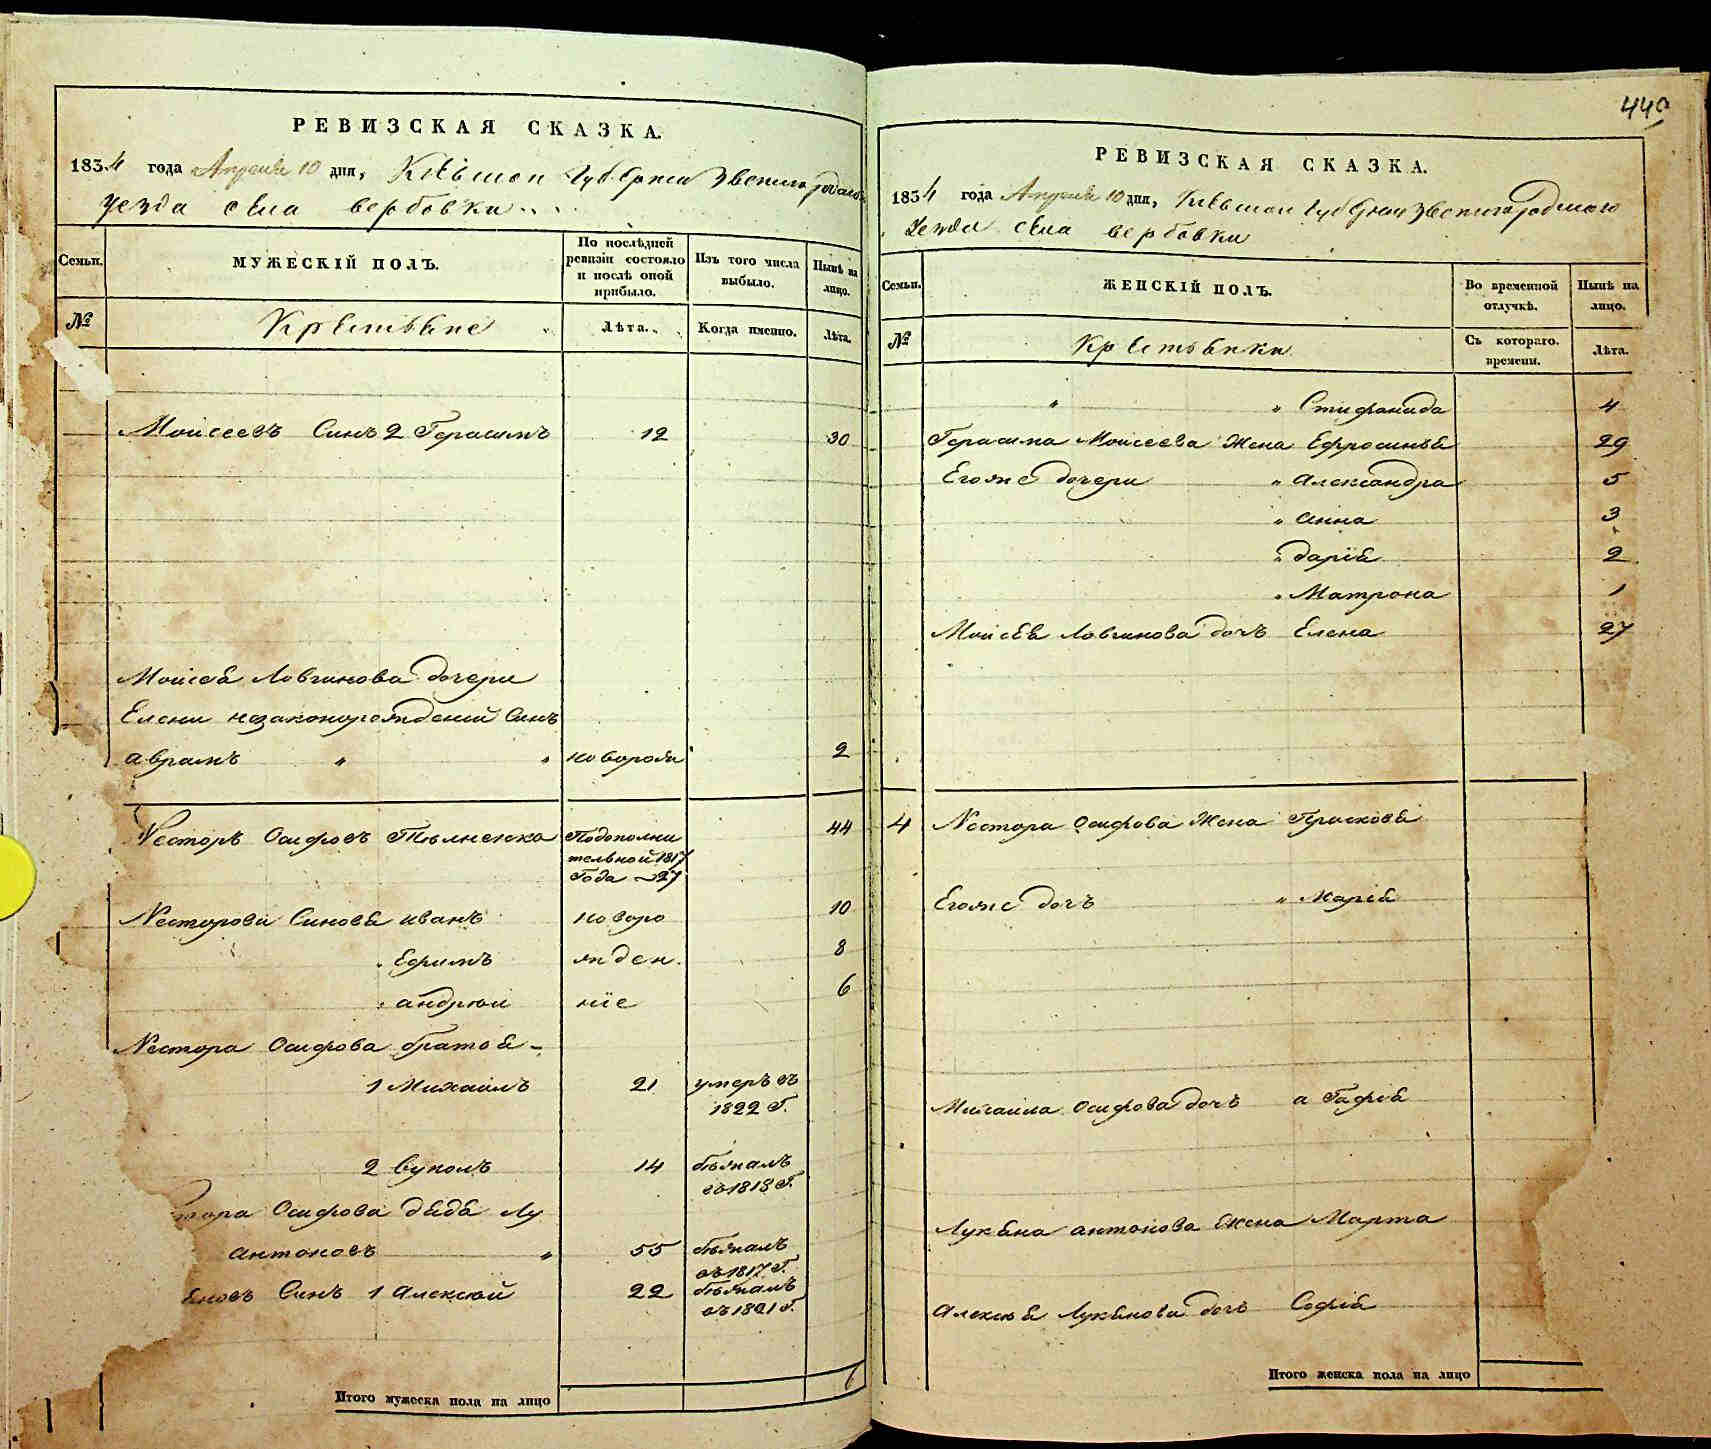 РЕВИЗСКАЯ СКАЗКА.
1834 года Апреля 10 дня, Кіевской Губерніи Звенигородскаго
уезда села вербовки
Семьи.
МУЖЕСКІЙ ПОЛЪ.
По послѣдней ревизіи состояло и послѣ оной прибыло.
Изъ того числа выбыло.
Нынѣ на лицо.
№
Крестьяне
Лѣта.
Когда именно.
Лѣта.
Моисеевъ Синъ 2 Герасимъ 12 30
Моисея Логвинова дочери
Елени незаконорожденій Синъ
аврамъ " " новорож 2
Несторъ Осифовъ 44
Подополни
тельной 1817
Года 27
Несторови Синовя иванъ новоро 10
" Ефимъ жден 8
" андрюй ніе 6
Нестора Осифова братья
1 Михаилъ 21 умеръ въ
1822 Г.
2 Вуколъ 14 бѣжалъ
въ 1818 Г.
тора Осифова дядя Лу
антоновъ " 55 бѣжалъ
въ 1817 Г.
яновъ Синъ 1 Алексюй 22 бѣжалъ
въ 1821 Г.
Итого мужеска пола на лицо 6
440
РЕВИЗСКАЯ СКАЗКА.
1834 года Апреля 10 дня, Кіевской Губерніи Звенигородскаго
Уезда села вербовки
Семьи.
ЖЕНСКІЙ ПОЛЪ.
Во временной отлучкѣ.
Нынѣ на лицо.
№
Крестьянки
Съ котораго. времени.
Лѣта.
" " Стифанида 4
Герасима Моисеева Жена Ефросинья 29
Егожe дочери " Александра 5
" анна 3
" дарія 2
" Матрона 1
Моисея Логвинова дочъ Елена 27
4 Нестора Осифова Жена Прасковя
Егоже дочъ " Марія
Михаила Осифова дочъ а Гафія
Лукяна антонова Жена Марта
Алексюя Лукянова дочъ Софія
Итого женска пола на лицо